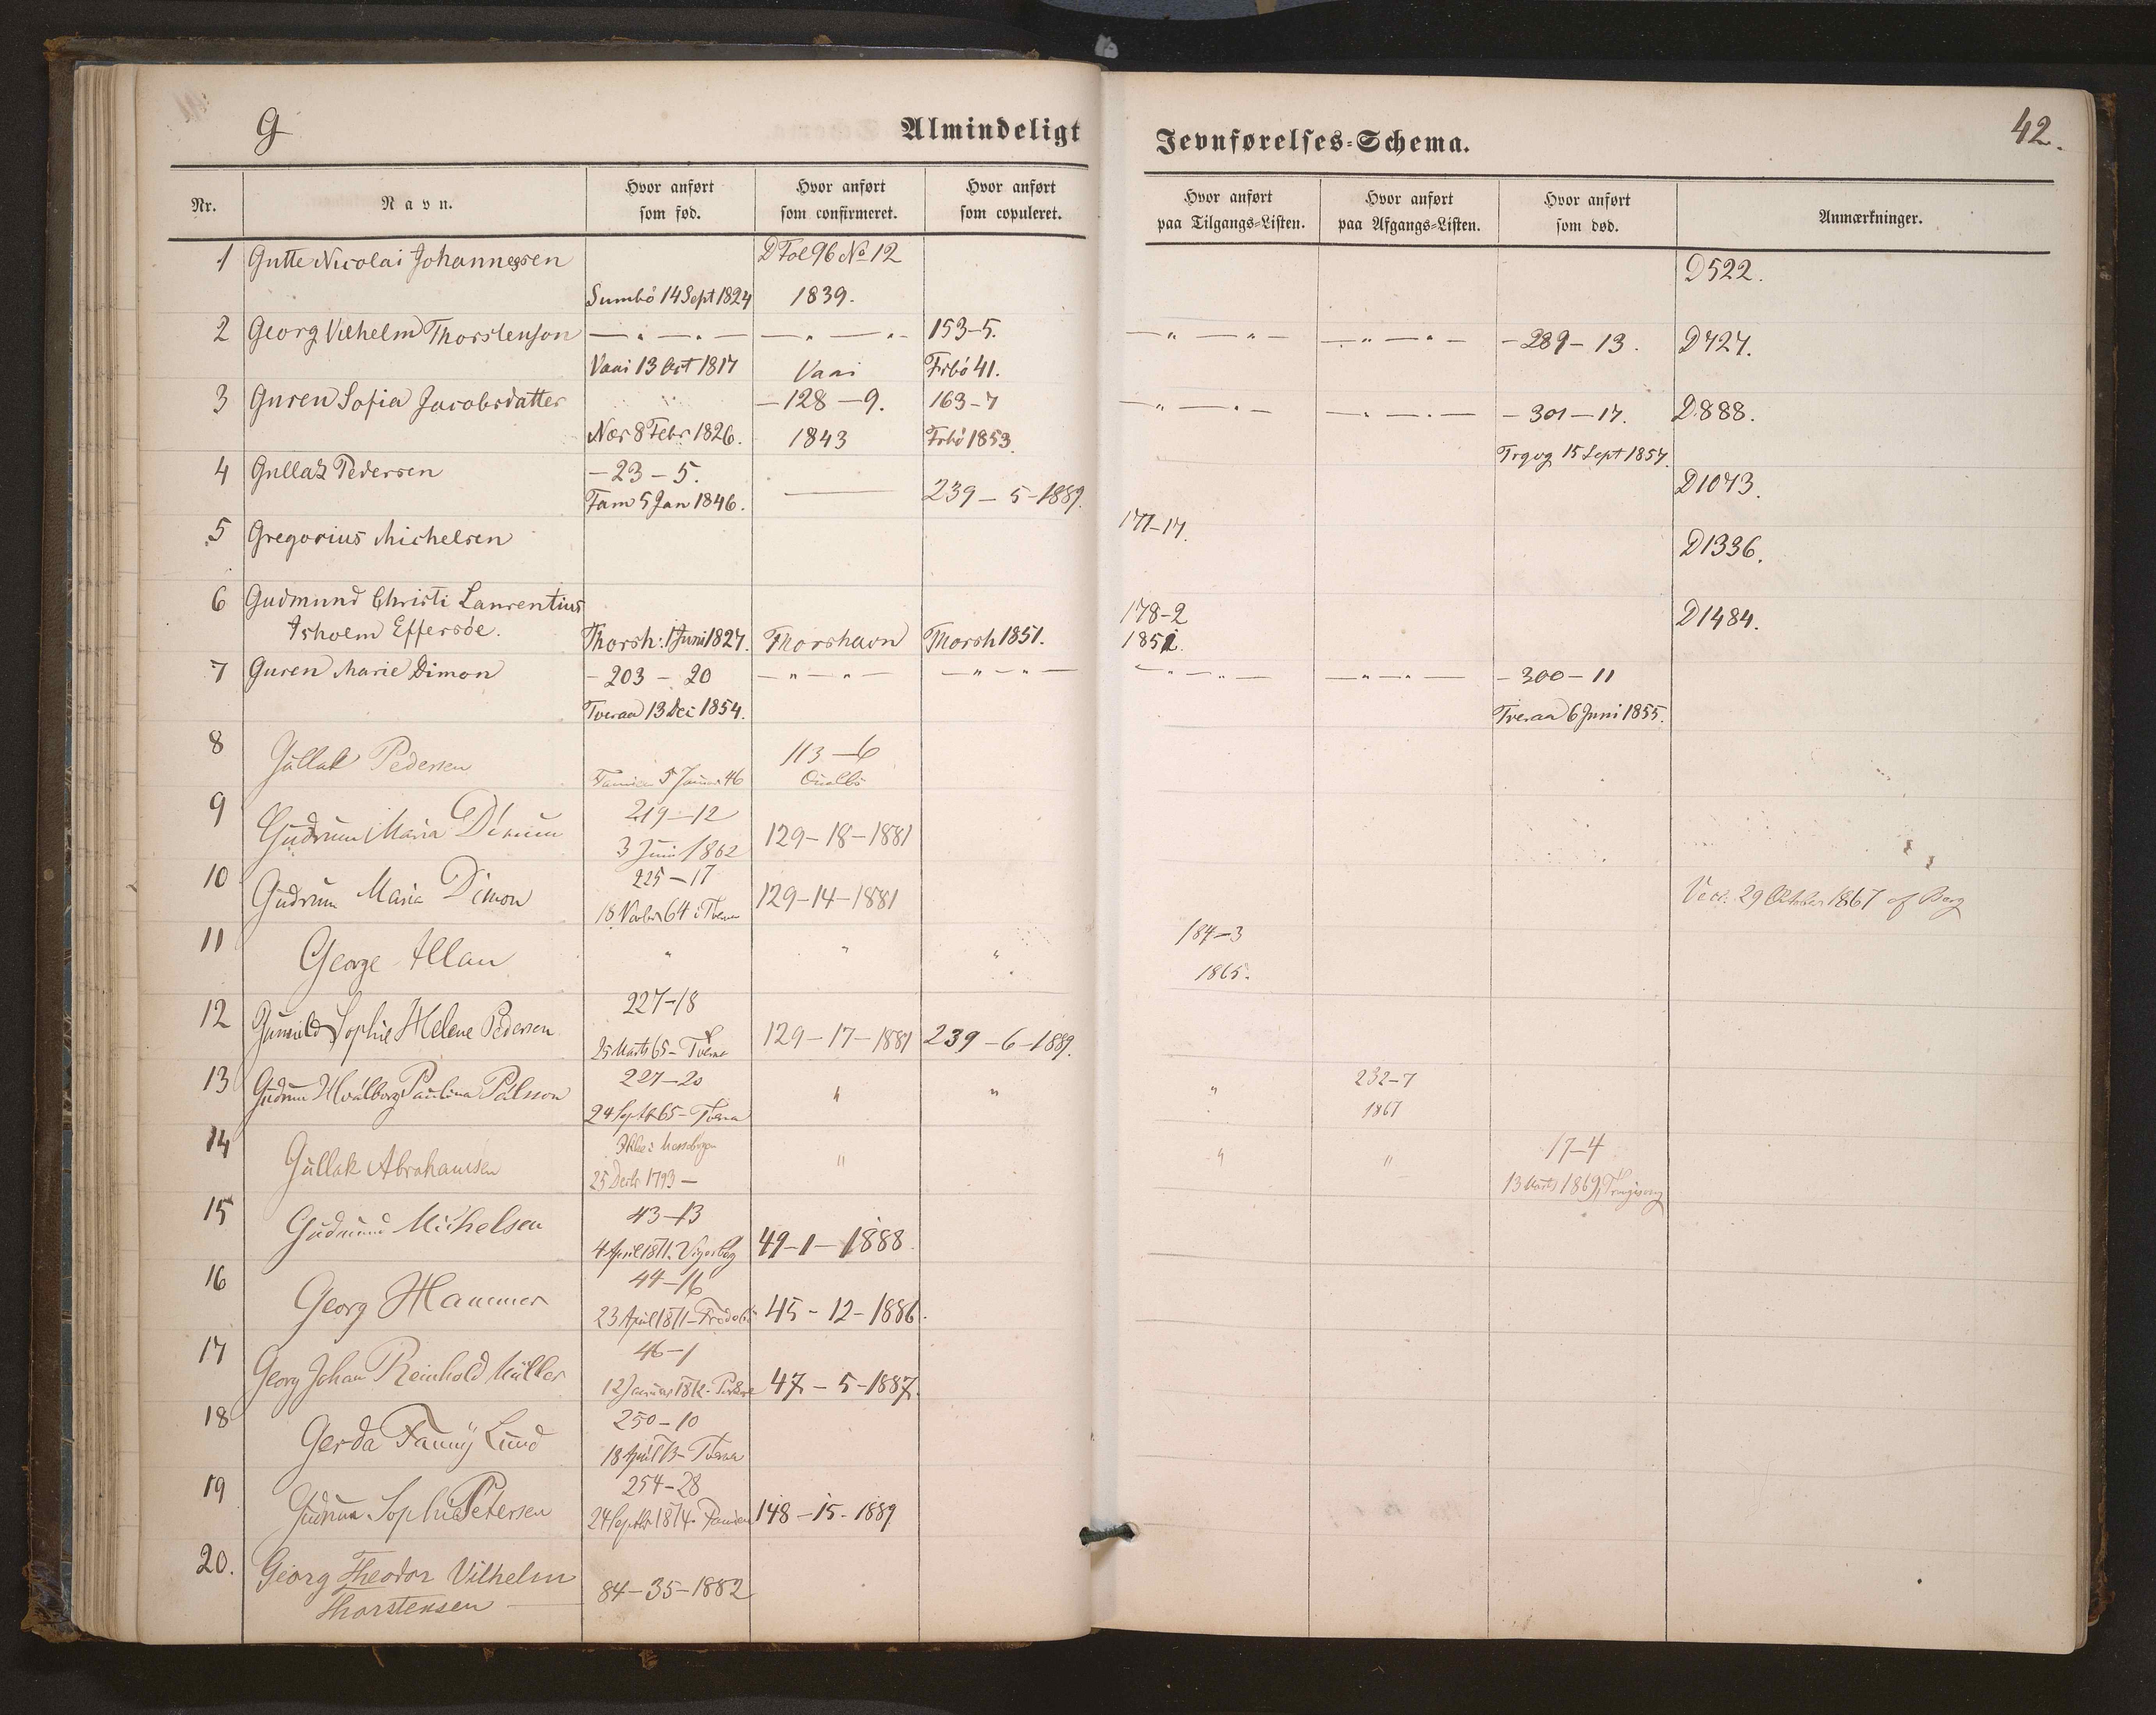 G
Almindeligt Jevnførelses-Schema.
42.
Nr.
Navn.
Hvor anført som fød.
Hvor anført som confirmeret.
Hvor anført som copuleret.
Hvor anført paa Tilgangs-Listen.
Hvor anført paa Afgangs-Listen.
Hvor anført som død.
Anmærkninger.
1 Gutte Nicolai Johannessen D Fol 96 No 12 D522.
Sumbö 14 Sept 1824 1839.
2 Georg Vilhelm Thorstenson — " — " — — " — " - 153-5. — " — " — — " — " — - 289 - 13. D727.
Vaai 13 Oct 1817 Vaai Frbö 41.
3 Guren Sofia Jacobsdatter — 128 — 9. 163-7 — " — " — — " — " — - 301 — 17. D888.
Næs 8 Febr 1826. 1843 Frbö 1853. Trgvg 15 Sept 1857.
4 Gullak Pedersen — 23 — 5. D1073.
Fam 5 Jan 1846. — 239 — 5 - 1889.
5 Gregorius Michelsen 177-17. D1336.
6 Gudmund Christi Laurentius 178-2 D1484.
Isholm Effersöe. Thorsh: 1 Juni 1827. Thorshavn Thorsh 1851. 1851.
7 Guren Marie Dimon - 203 - 20 — " — " — — " — " — — " — " — — " — " — - 300 - 11
Tveraa 13 Dec 1854. Tveraa 6 Juni 1855.
8 Gullak Pedersen 113 — 6
5 Januar 46 Qualbö
9 Gudrun Maria Dimun 219 - 12
3 Juni 1862 129 - 18 - 1881
10 Gudrun Maria Dimon 225 - 17 129 - 14 - 1881 29 Oktober 1867 af Berg
18 64 i
11 George Allan " " " 184-3
1865.
12 Gunnild Sophie Helene Pedersen 227-18
25 Marts 65 - 129 - 17 - 1881 239 - 6 - 1889.
13 Gudrun Hvalborg Paulina Pálsson 227-20 " " " 232-7
24 Septb 65 - 1867
14 Gullak Abrahamsen " " " 17-4
25 Decbr 1793 — 13 Marts 1869,
15 Gudmund Michelsen 43-13
4 April 1871. 49-1-1888.
16 Georg Hammer 44-16
23 April 1871 - Frodebö 45 - 12 - 1886.
17 Georg Johan Reinhold Müller 46-1
12 Januar 1872 - 47 - 5 - 1887.
18 Gerda Fanny Lund 250 - 10
18 April 73 - Tveraa
19 Gudrun Sophie Petersen 254-28
24 Septbr 1874. 148 - 15 - 1889
20. Georg Theodor Vilhelm
Thorstensen — 84-35-1882